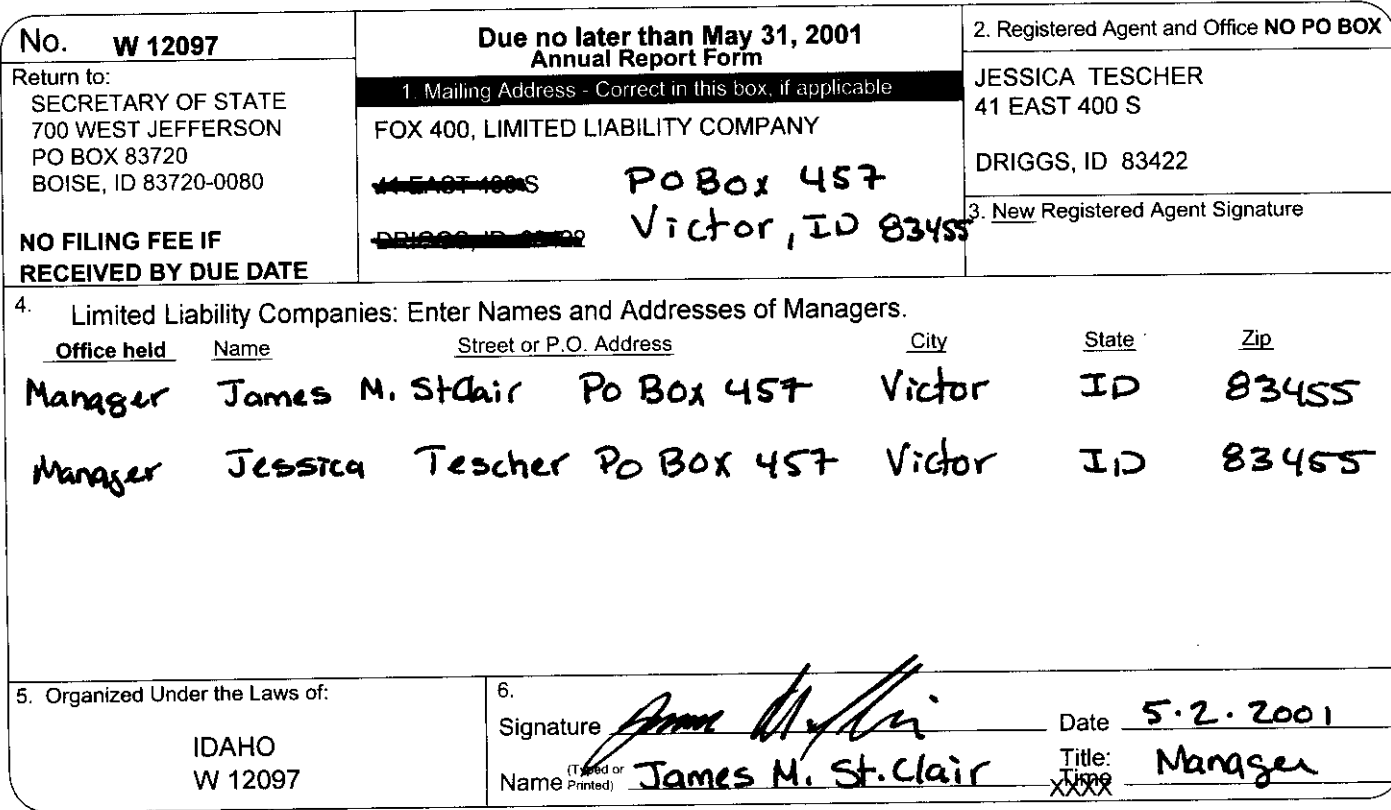 No. W 12097
Return to:
SECRETARY OF STATE
700 WEST JEFFERSON
PO BOX 83720
BOISE, ID 83720-0080
NO FILING FEE IF
RECEIVED BY DUE DATE
Due no later than May 31, 2001
Annual Report Form
1. Mailing Address - Correct in this box, if applicable
FOX 400, LIMITED LIABILITY COMPANY
41 EAST 400 S
PO Box 457
Victor, ID 83455
2. Registered Agent and Office NO PO BOX
JESSICA TESCHER
41 EAST 400 S
DRIGGS, ID 83422
3. New Registered Agent Signature
4. Limited Liability Companies: Enter Names and Addresses of Managers.
Office held Name Street or P.O. Address City State Zip
Manager James M. StClair Po Box 457 Victor ID 83455
Manager Jessica Tescher Po Box 457 Victor ID 83455
5. Organized Under the Laws of:
IDAHO
W 12097
6.
Signature Date 5.2.2001
Name (Typed or Printed) James M. St.Clair Title: Manager
XXXX